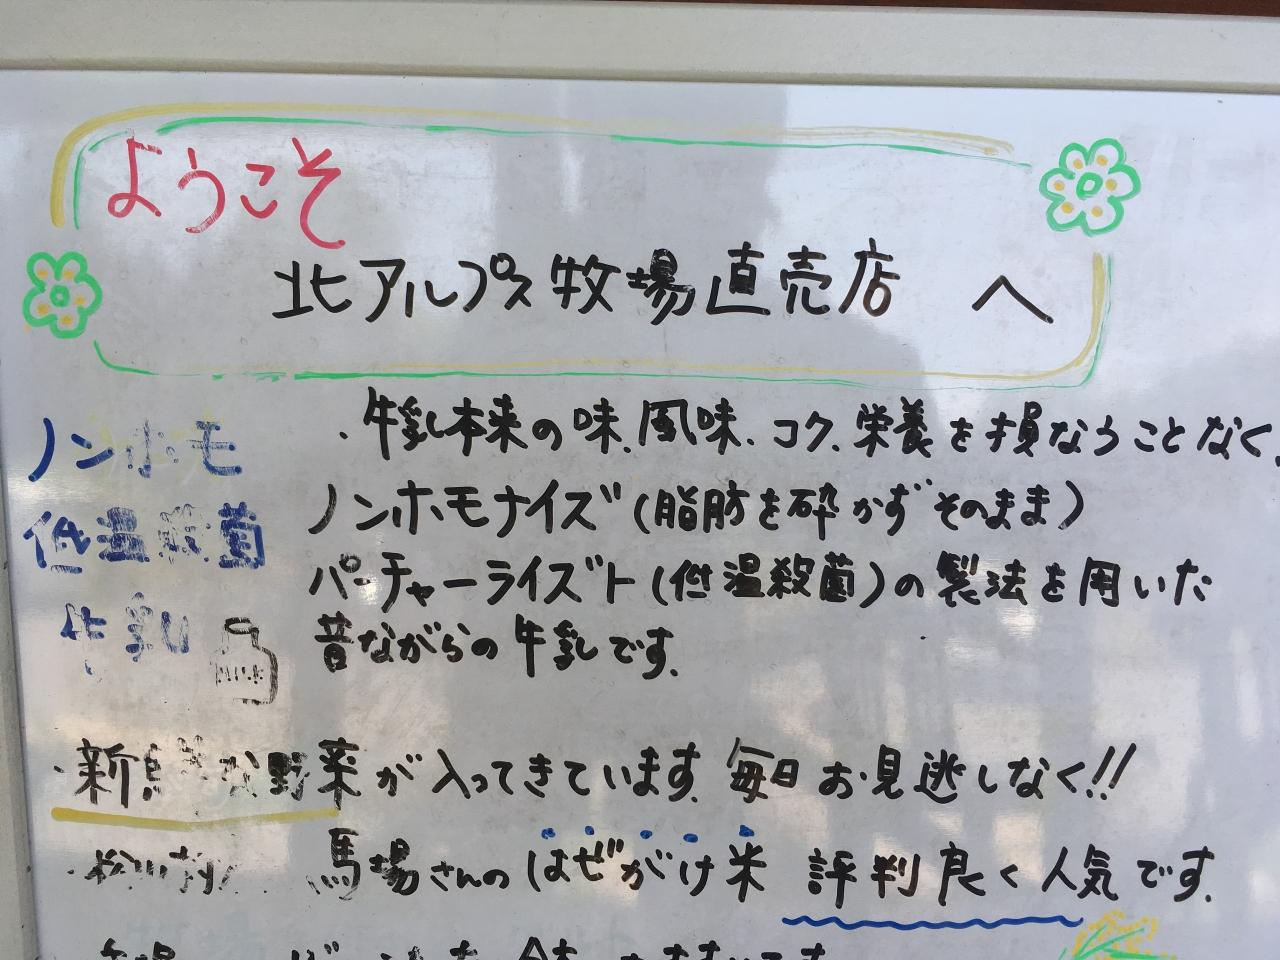 ようこそ
北アルプス牧場直売店 へ
ノンホモ
低温殺菌
牛乳
MILK
・牛乳本来の味、風味、コク、栄養を損なうことなく、
ノンホモナイズ(脂肪を砕かずそのまま)
パーチャーライズト(低温殺菌)の製法を用いた
昔ながらの牛乳です。
・新鮮な野菜が入ってきています。毎日お見逃しなく!!
・松川村 馬場さんのはぜがけ米 評判良く人気です。